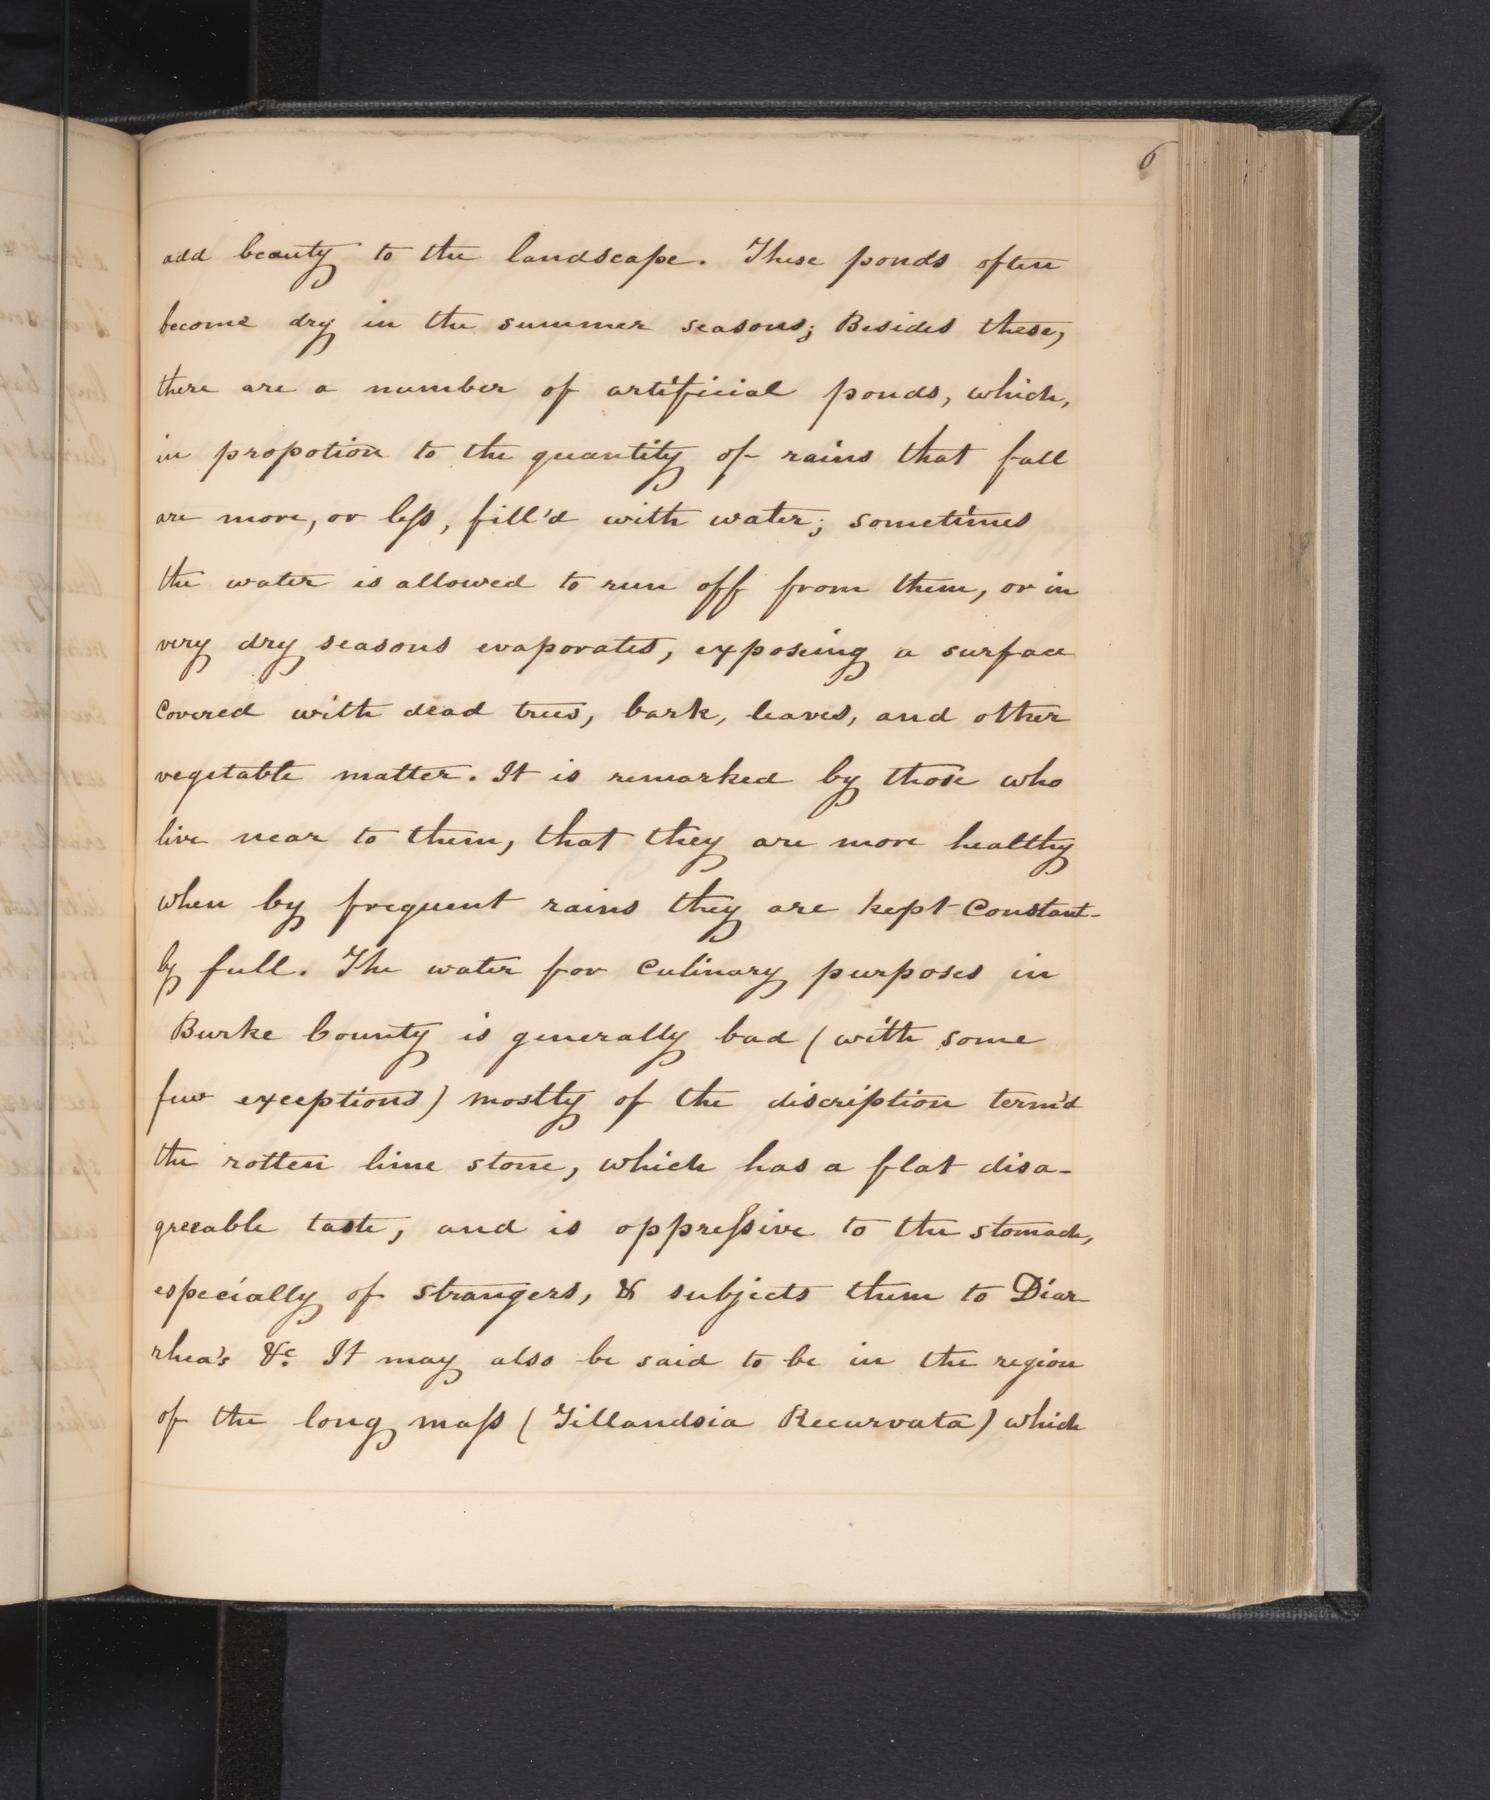 6
add beauty to the landscape. These ponds often
become dry in the summer seasons; Besides these,
there are a number of artificial ponds, which,
in propotion to the quantity of rains that fall
are more, or leſs, fill'd with water; sometimes
the water is allowed to run off from them, or in
very dry seasons evaporates, exposeing a surface
covered with dead trees, bark, leaves, and other
vegetable matter. It is remarked by those who
live near to them, that they are more healthy
when by frequent rains they are kept Constant-
ly full. The water for Culinary purposes in
Burke County is generally bad (with some
few exceptions) mostly of the discription term'd
the rotten lime stone, which has a flat disa-
greeable taste, and is oppreſsive to the stomach,
especially of strangers, & subjects them to Diar-
rhea's &c. It may also be said to be in the region
of the long moſs (Tillandsia Recurvata) which